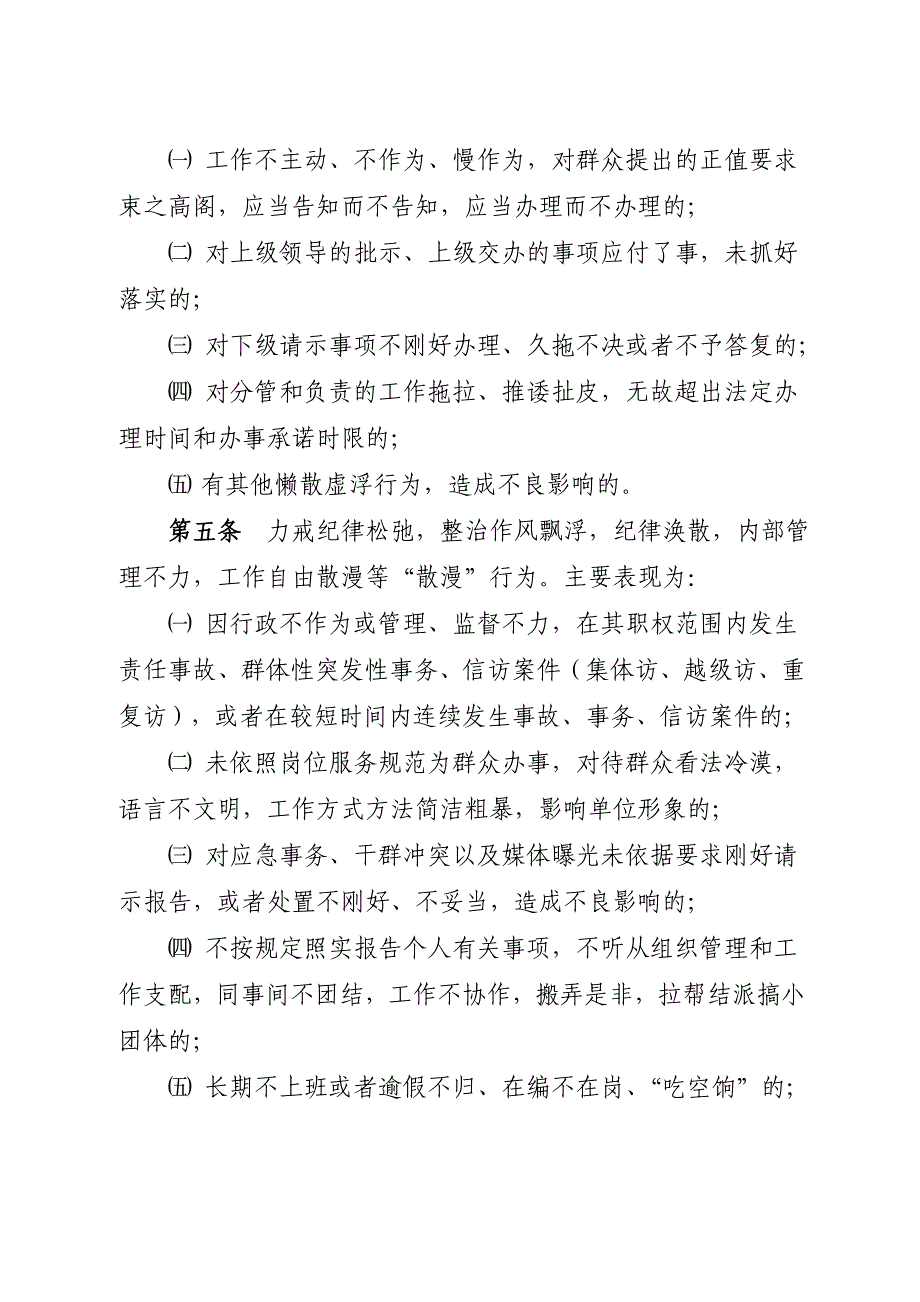 ㈠ 工作不主动、不作为、慢作为，对群众提出的正值要求
束之高阁，应当告知而不告知，应当办理而不办理的；
㈡ 对上级领导的批示、上级交办的事项应付了事，未抓好
落实的；
㈢ 对下级请示事项不刚好办理、久拖不决或者不予答复的；
㈣ 对分管和负责的工作拖拉、推诿扯皮，无故超出法定办
理时间和办事承诺时限的；
㈤ 有其他懒散虚浮行为，造成不良影响的。
第五条　力戒纪律松弛，整治作风飘浮，纪律涣散，内部管
理不力，工作自由散漫等“散漫”行为。主要表现为：
㈠ 因行政不作为或管理、监督不力，在其职权范围内发生
责任事故、群体性突发性事务、信访案件（集体访、越级访、重
复访），或者在较短时间内连续发生事故、事务、信访案件的；
㈡ 未依照岗位服务规范为群众办事，对待群众看法冷漠，
语言不文明，工作方式方法简洁粗暴，影响单位形象的；
㈢ 对应急事务、干群冲突以及媒体曝光未依据要求刚好请
示报告，或者处置不刚好、不妥当，造成不良影响的；
㈣ 不按规定照实报告个人有关事项，不听从组织管理和工
作支配，同事间不团结，工作不协作，搬弄是非，拉帮结派搞小
团体的；
㈤ 长期不上班或者逾假不归、在编不在岗、“吃空饷”的；